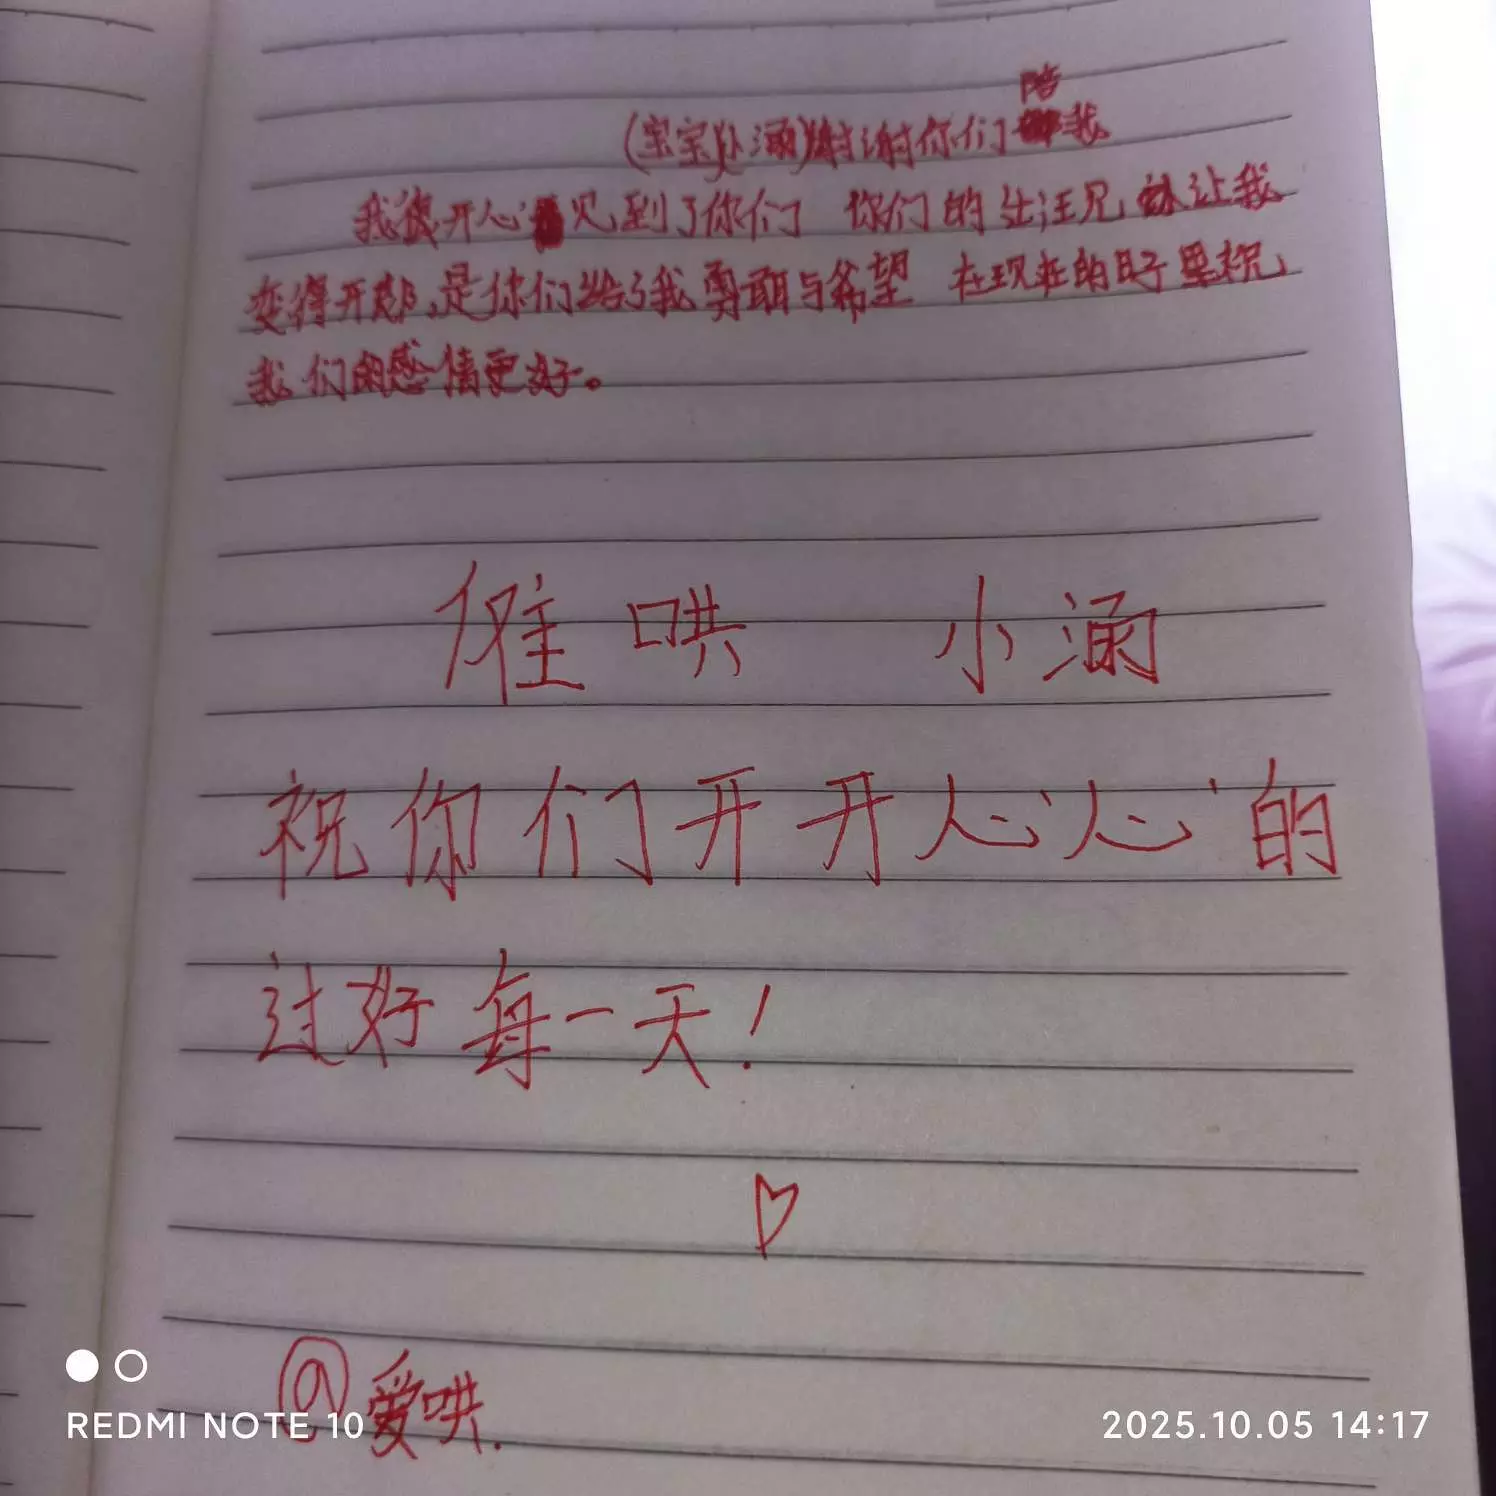 陪
(宝宝小涵)谢谢你们我
我很开心见到了你们 你们的出现让我
变得开朗,是你们给了我勇敢与希望 在现在的日子里祝
我们的感情更好。
哄 小涵
祝你们开开心心的
过好每一天!
@爱哄.
REDMI NOTE 10
2025.10.05 14:17